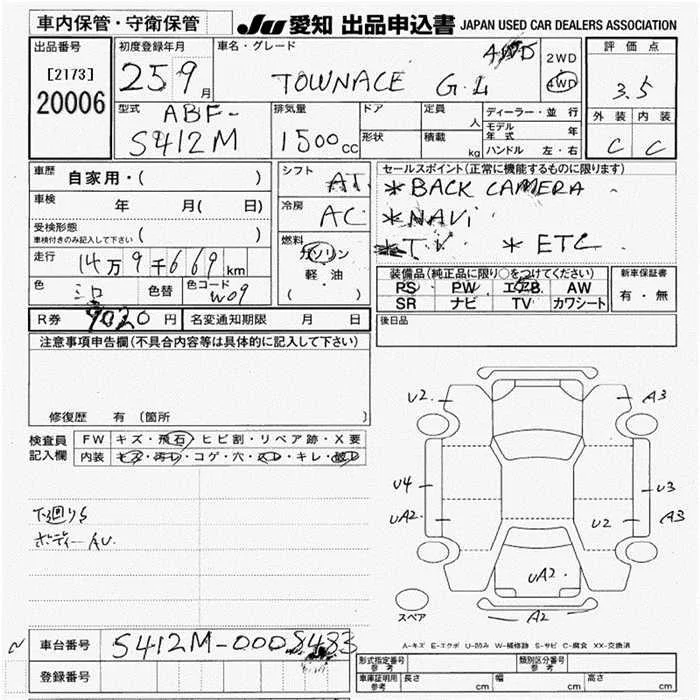 車内保管・守衛保管
JU 愛知 出品申込書 JAPAN USED CAR DEALERS ASSOCIATION
出品番号
[2173]
20006
初度登録年月
25 9月
車名・グレード
TOWNACE GL
4WD
2WD
4WD
評価点
3.5
外装 内装
C C
型式
ABF-
S412M
排気量
1500cc
ドア
形状
定員 人
積載 kg
ディーラー・並行
モデル年式 年
ハンドル 左・右
車歴 自家用・( )
車検 年 月( 日)
受検形態
車検付きのみ記入して下さい ( )
走行 14万9千669km
色 シロ 色替 色コード W09
シフト AT
冷房 AC
燃料
ガソリン
軽油
( ・ )
セールスポイント(正常に機能するものに限ります)
*BACK CAMERA
*NAVi
*T.V *ETC
装備品(純正品に限り○をつけてください)
PS PW エアB AW
SR ナビ TV カワシート
新車保証書
有・無
R券 9020円 名変通知期限 月 日
後日品
注意事項申告欄(不具合内容等は具体的に記入して下さい)
修復歴 有 〔箇所 〕
検査員記入欄
FW キズ・飛石・ヒビ割・リペア跡・X要
内装 キズ・汚れ・コゲ・穴・スレ・キレ・破レ
下廻りS
ボディーAU.
U2
A3
U4
UA2
U3
U2
A3
UA2
A2
スペア
A-キズ E-エクボ U-凹み W-補修跡 S-サビ C-腐食 XX-交換済
車台番号 S412M-0008483
登録番号
形式指定番号 参考
類別区分番号 参考
車庫証明用 参考 長さ cm 幅 cm 高さ cm